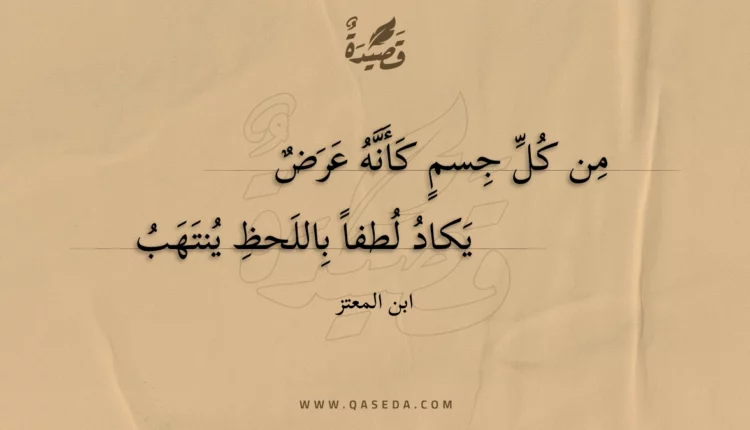 قَصِيدَةٌ
مِن كُلِّ جِسمٍ كَأَنَّهُ عَرَضٌ
يَكادُ لُطفاً بِاللَحظِ يُنتَهَبُ
ابن المعتز
WWW.QASEDA.COM